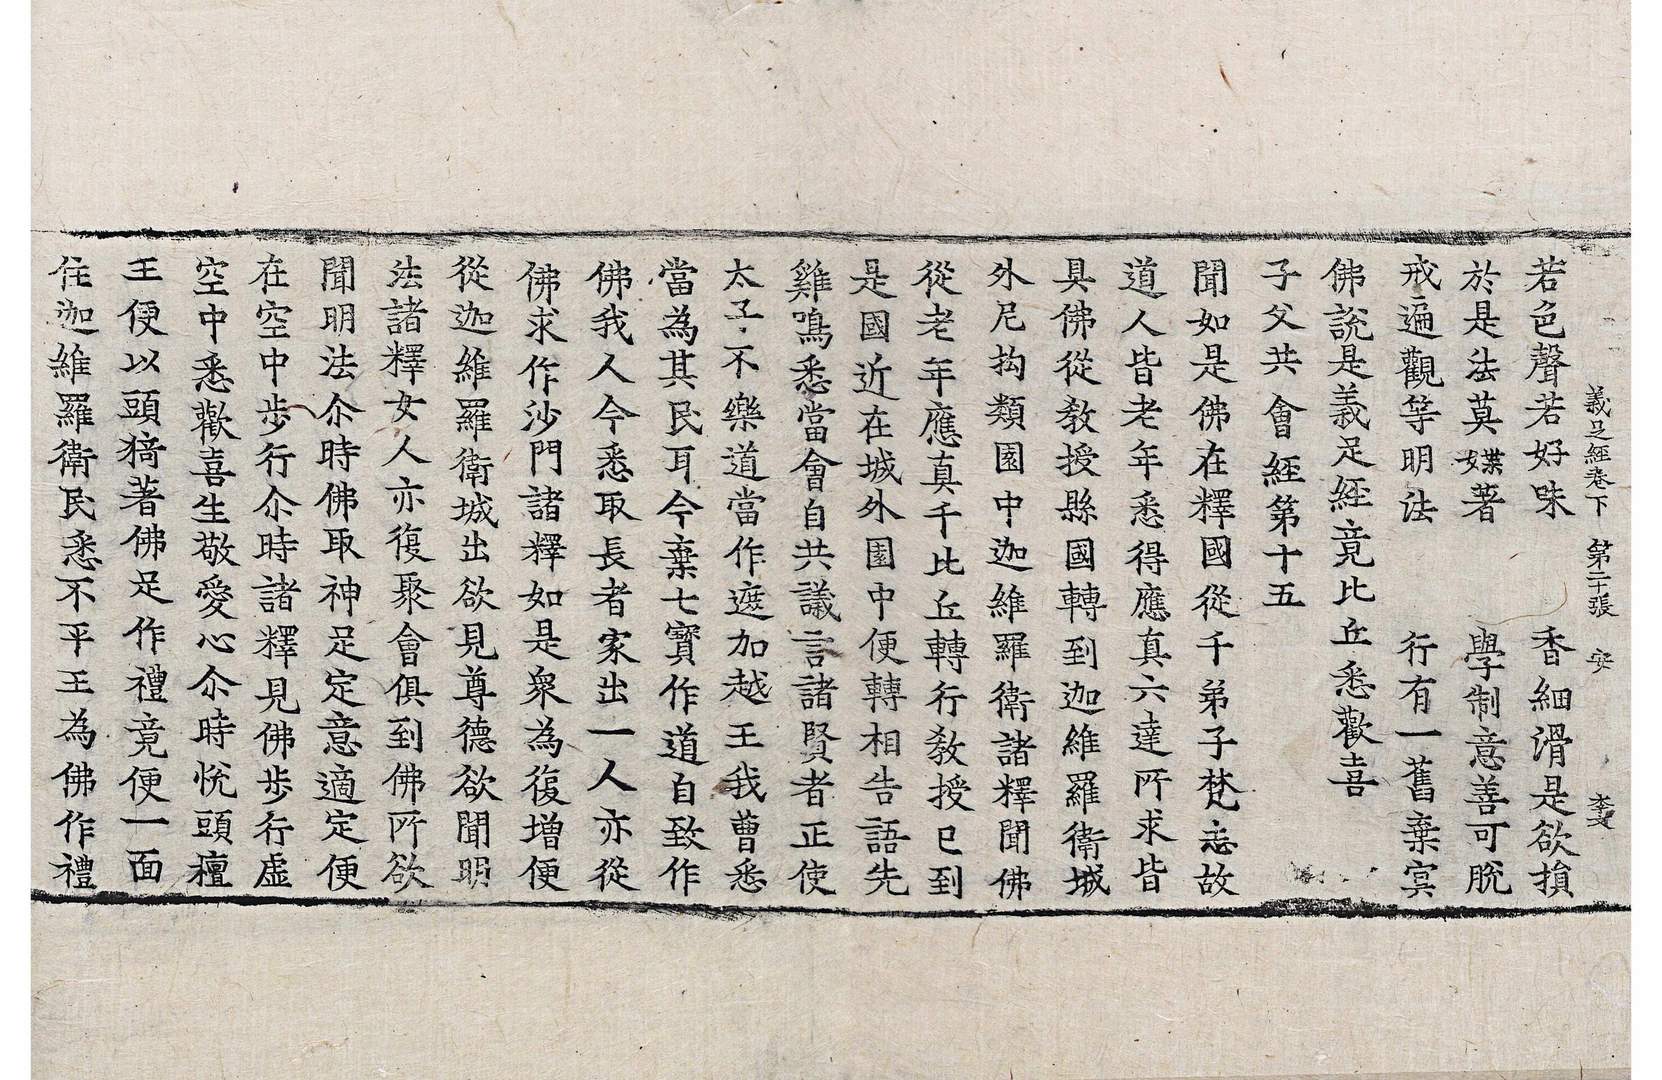 義足經卷下 第二十張 安 李
若色聲若好味 香細滑是欲損
於是法莫媟著 學制意善可脫
戒遍觀等明法 行有一舊棄㝠
佛說是義足經竟比丘悉歡喜
子父共會經第十五
聞如是佛在釋國從千弟子梵志故
道人皆老年悉得應真六達所求皆
具佛從教授縣國轉到迦維羅衛城
外尼拘類園中迦維羅衛諸釋聞佛
從老年應真千比丘轉行教授已到
是國近在城外園中便轉相告語先
雞鳴悉當會自共議言諸賢者正使
太子不樂道當作遮加越王我曹悉
當為其民耳今棄七寶作道自致作
佛我人今悉取長者家出一人亦從
佛求作沙門諸釋如是衆為復增便
從迦維羅衛城出欲見尊德欲聞明
法諸釋女人亦復聚會俱到佛所欲
聞明法尒時佛取神足定意適定便
在空中步行尒時諸釋見佛步行虛
空中悉歡喜生敬愛心尒時悅頭檀
王便以頭猗著佛足作禮竟便一面
住迦維羅衛民悉不平王為佛作禮